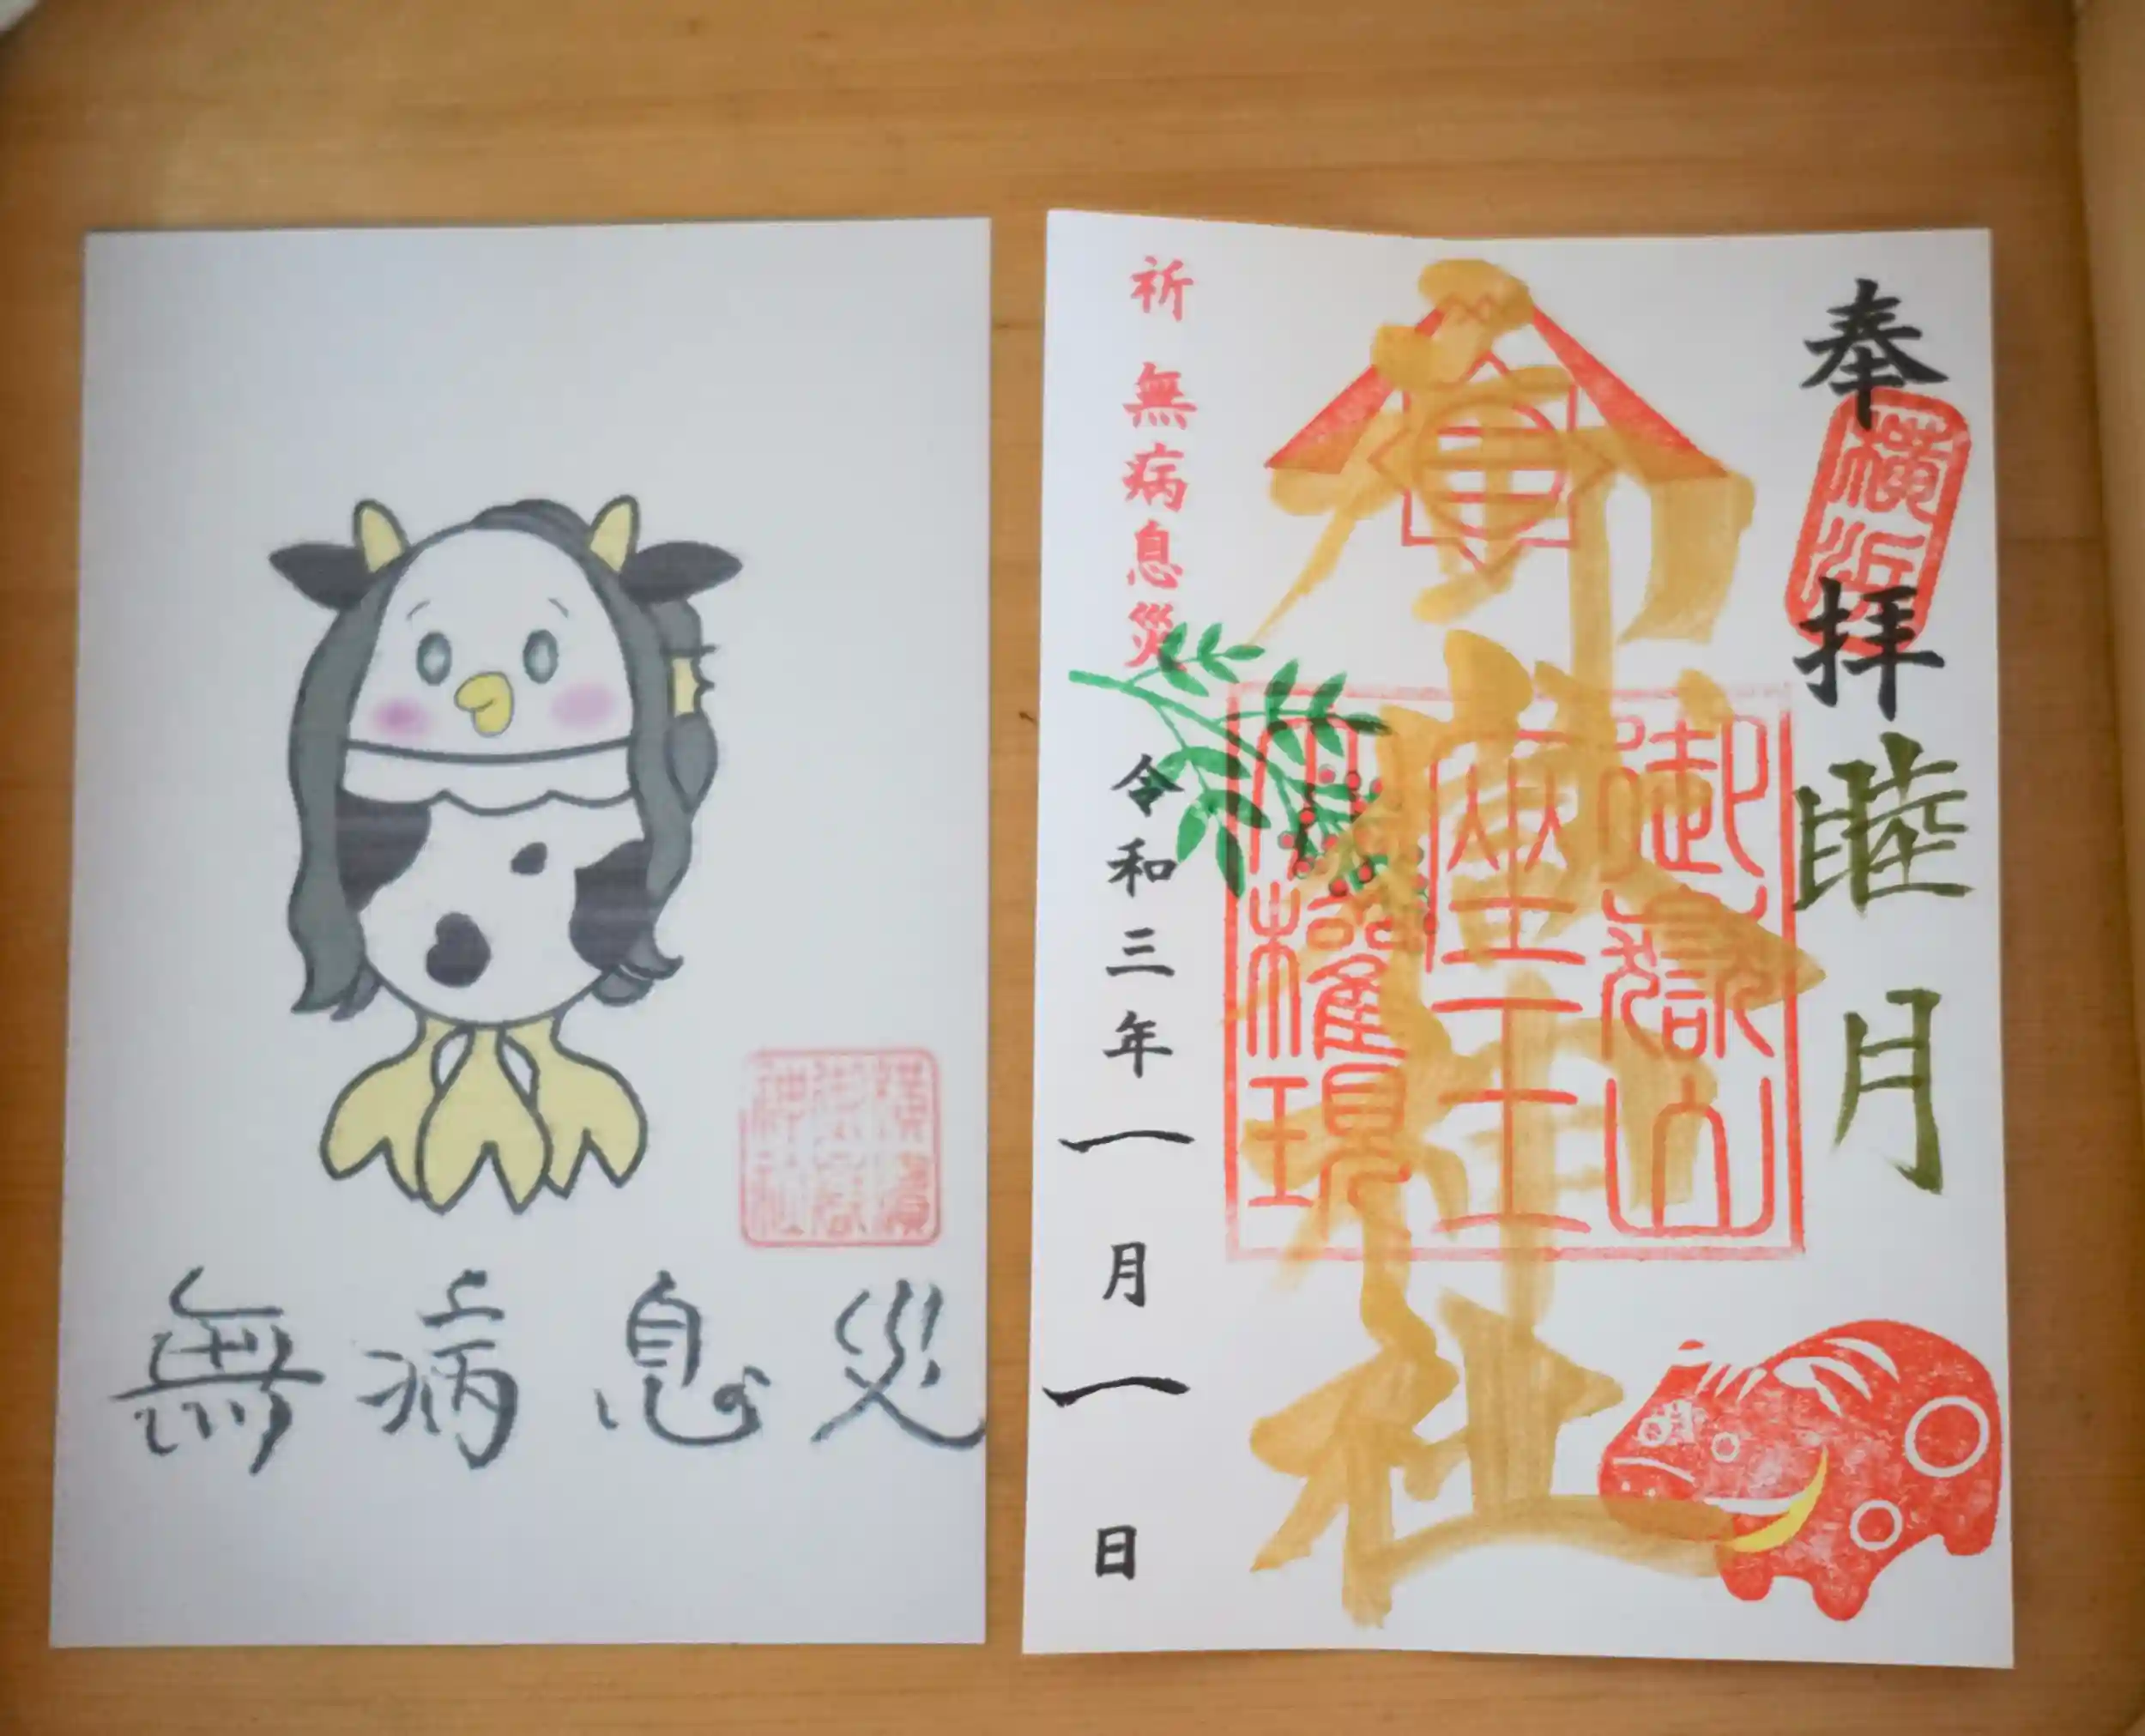 無病息災
横濱
御嶽
神社
奉拝
横浜
睦月
御嶽神社
御嶽山
座王
大權現
祈 無病息災
令和三年一月一日